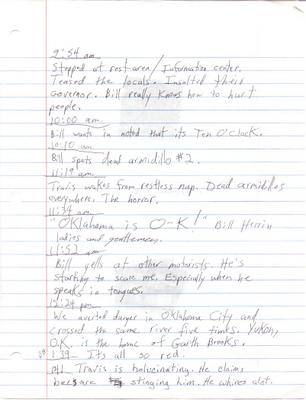 9:54 am
Stopped at rest area/Information center.
Teased the locals. Insulted their
governor. Bill really knows how to hurt
people.
10:00 am.
Bill wants in noted that its Ten O'Clock.
10:10 am
Bill spots dead armidillo #2.
11:19 am.
Travis wakes from restless nap. Dead armidillos
everywhere. The horror.
11:34 am
"Oklahoma is O-K!" Bill Herrin
ladies and gentlemen.
11:52 am
Bill yells at other motorists. He's
starting to scare me. Especially when he
speaks in tongues.
12:24 pm
We averted danger in Oklahoma City and
crossed the same river five times. Yukon,
O.K. is the home of Garth Brooks.
1:39 It's all so red.
pm Travis is halucinating. He claims
bees are stinging him. He whines alot.